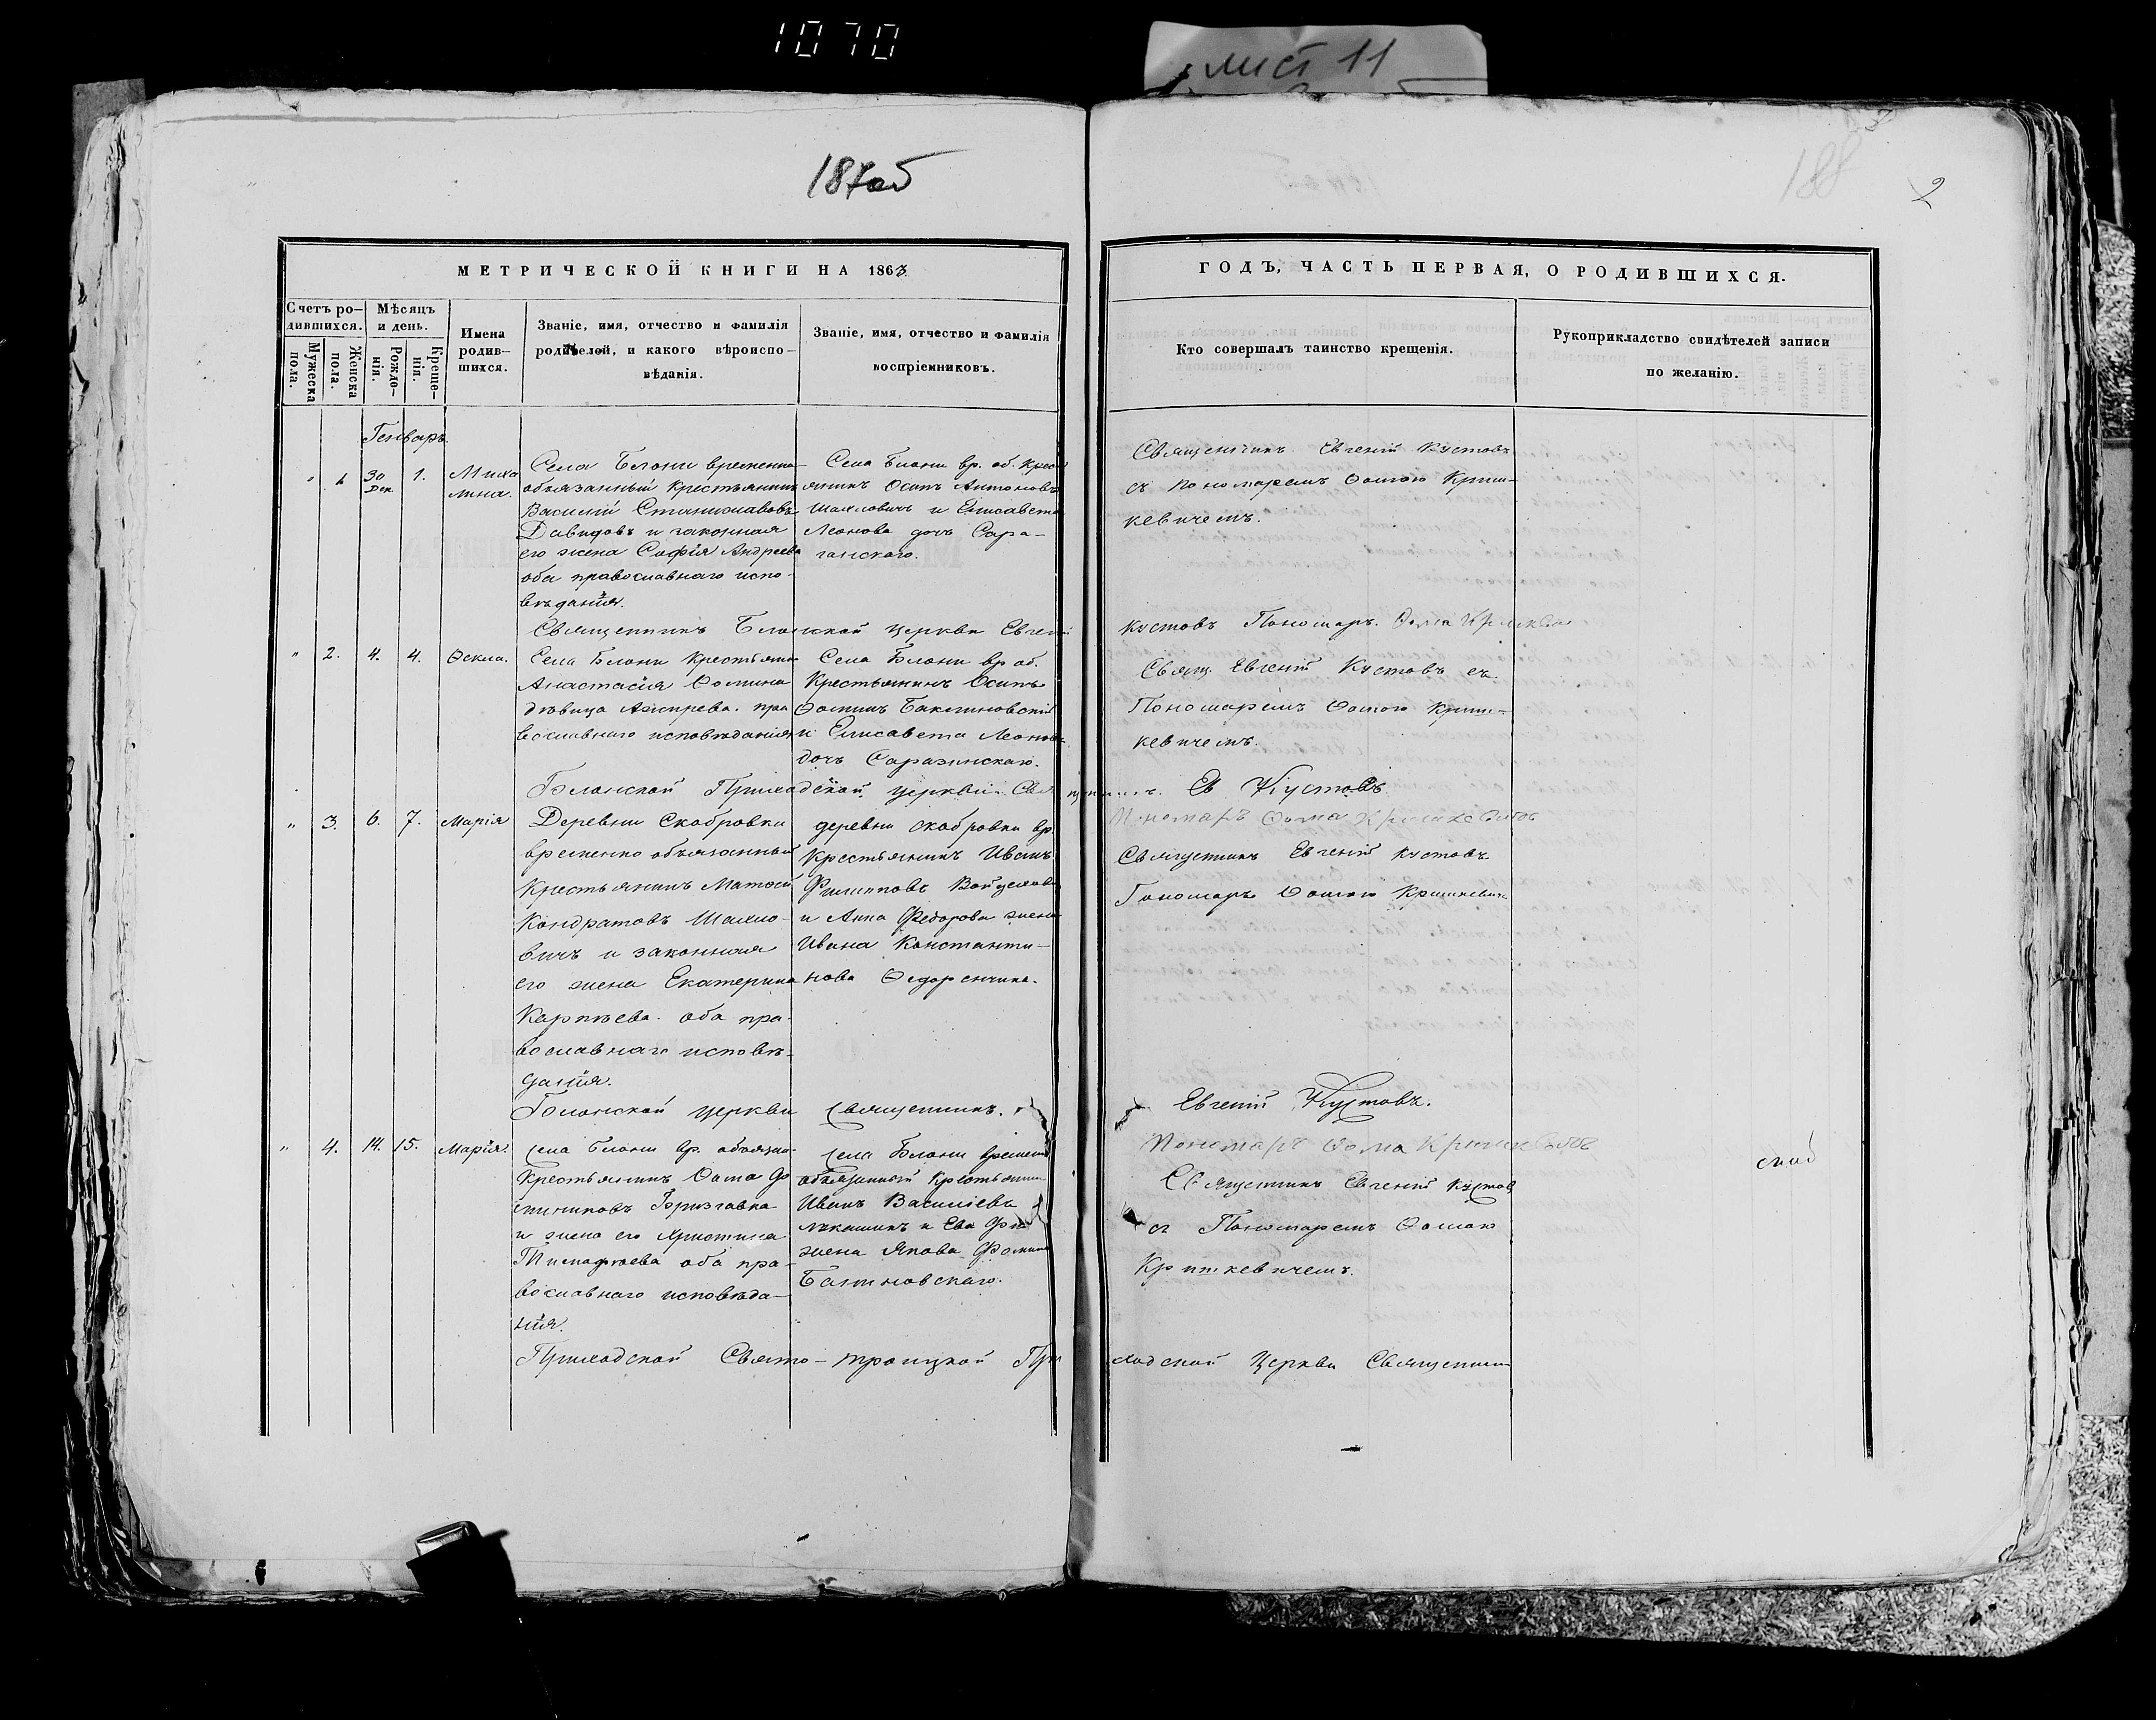 1070
лист 11
187об
188
2
МЕТРИЧЕСКОЙ КНИГИ НА 1863
ГОДЪ, ЧАСТЬ ПЕРВАЯ, О РОДИВШИХСЯ.
Счетъ ро-
дившихся.
Мужеска
пола.
Женска
пола.
Мѣсяцъ
и день.
Рождо-
нія.
Креще-
нія.
Имена
родив-
шихся.
Званіе, имя, отчество и фамилія
родителей, и какого вѣроиспо-
вѣданія.
Званіе, имя, отчество и фамилія
воспріемниковъ.
Кто совершалъ таинство крещенія.
Рукоприкладство свидѣтелей записи
по желанію.
Генварь.
" 1 30 Дек. 1.
Миха
лина.
Села Блони временно-
обязанный Крестьянинъ
Василій Станиславовъ
Давидовъ и законная
его жена Софія Андреева
оба православнаго испо-
вѣданія.
Села Блони вр. об. Крест
янинъ Осипъ Антоновъ
Шахловичъ и Елисавета
Леонова дочь Сара-
Священникъ Евгеній Кустовъ
съ пономаремъ Ѳомою Криш-
кевичемъ.
Священникъ Блонской церкви Евгеній
Кустовъ Пономарь Ѳома
" 2. 4. 4. Ѳекла.
Села Блони Крестьянка
Анастасія Ѳомина
дѣвица пра
вославнаго исповѣданія
Села Блони вр об.
Крестьянинъ Осипъ
Ѳоминъ
и Елисавета Леонова
дочь
Свящ. Евгеній Кустовъ съ
Пономаремъ Ѳомою Криш-
кевичемъ.
Блонской Приходской церкви Священникъ Ев Кустовъ
Пономарь Ѳома
" 3. 6. 7. Марія
Деревни Скобровки
временно обязанный
Крестьянинъ Матѳей
Кондратовъ Шахло-
вичъ и законная
его жена Екатерина
Карпѣева оба пра-
вославнаго исповѣ-
данія.
деревни Скобровки вр.
Крестьянинъ Иванъ
Филиповъ
и Анна Федорова жена
Ивана Константи-
нова Ѳедоренчика.
Священникъ Евгеній Кустовъ
Пономарь Ѳомою Кришкевичъ
Блонской церкви Священникъ. Евгеній Кустовъ.
Пономарь Ѳома
" 4. 14. 15. Марія.
села Блони вр. обязан-
Крестьянинъ Ѳома
и жена его Христина
Тимофѣева оба пра-
вославнаго исповѣда-
нія.
села Блони временно
обязанный Крестьянин
Иванъ Василіевъ
и Ева
жена Якова Фомина
Священникъ Евгеній Кустов
съ Пономаремъ Ѳомою
Кришкевичемъ.
Приходской Свято-троицкой При
ходской Церкви Священник